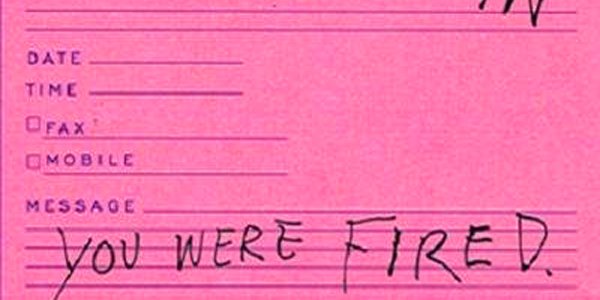 DATE
TIME
FAX
MOBILE
MESSAGE
YOU WERE FIRED.